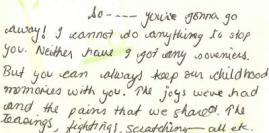 So ---- you're gonna go
away! I cannot do anything to stop
you. Neither have I got any soveniers.
But you can always keep our childhood
memories with you. The joys we've had
and the pains that we shared. The
teasings, fighting, scratching — all etc.